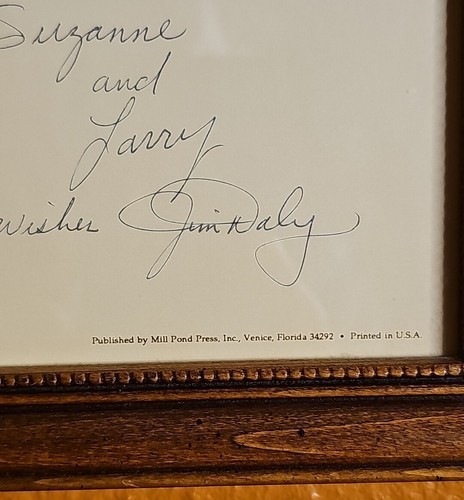 Suzanne
and
Larry
wishes Jim Daly
Published by Mill Pond Press, Inc., Venice, Florida 34292 • Printed in U.S.A.